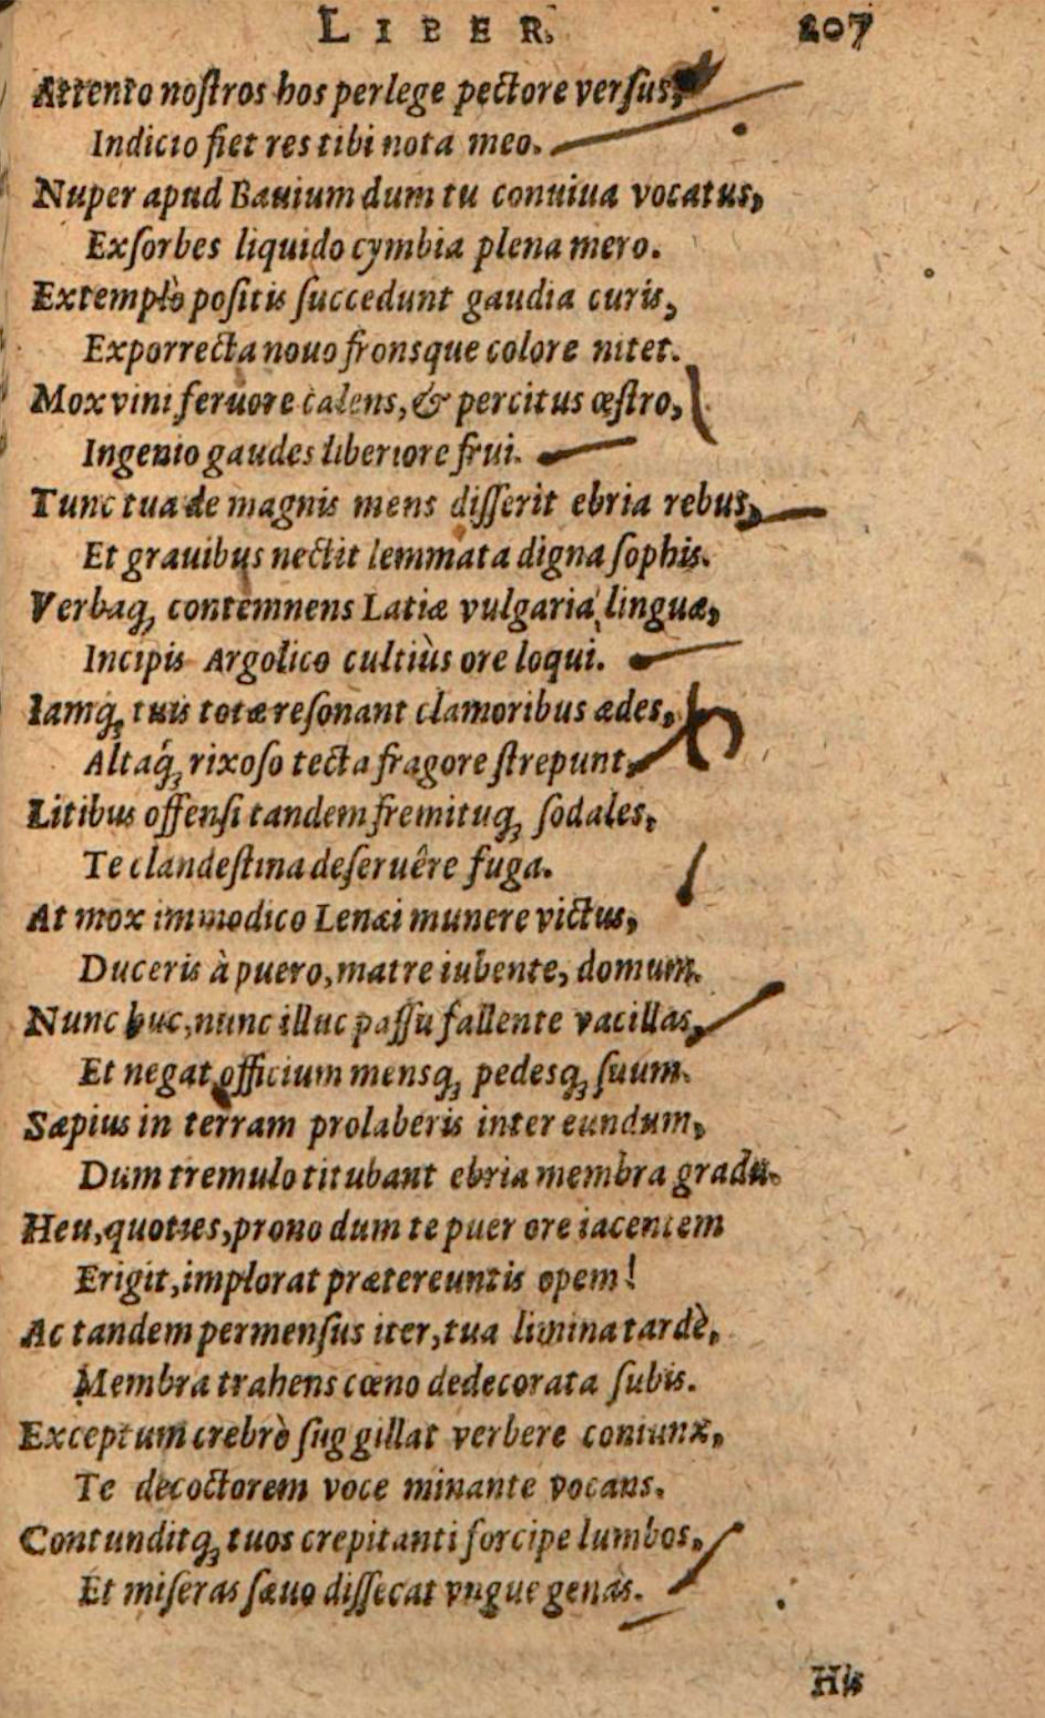 LIBER. 207
Attento noſtros hos perlege pectore verſus,
Indicio fiet res tibi nota meo.
Nuper apud Bauium dum tu conuiua vocatus,
Exſorbes liquido cymbia plena mero.
Extemplò poſitis ſuccedunt gaudia curis,
Exporrecta nouo fronsque colore nitet.
Mox vini feruore calens, & percitus œſtro,
Ingenio gaudes liberiore frui.
Tunc tua de magnis mens diſſerit ebria rebus,
Et grauibus nectit lemmata digna ſophis.
Verbaq́; contemnens Latiæ vulgaria linguæ,
Incipis Argolico cultiùs ore loqui.
Iamq́; tuis totæ reſonant clamoribus ædes,
Altaq́; rixoſo tecta fragore ſtrepunt,
Litibus offenſi tandem fremituq́; ſodales,
Te clandeſtina deſeruêre fuga.
At mox immodico Lenæi munere victus,
Duceris à puero, matre iubente, domum.
Nunc huc, nunc illuc paſſu fallente vacillas,
Et negat officium mensq́; pedesq́; ſuum.
Sæpius in terram prolaberis inter eundum,
Dum tremulo titubant ebria membra gradu.
Heu, quoties, prono dum te puer ore iacentem
Erigit, implorat prætereuntis opem!
Ac tandem permenſus iter, tua limina tardè,
Membra trahens cœno dedecorata ſubis.
Exceptum crebrò ſuggillat verbere coniunx,
Te decoctorem voce minante vocans.
Contunditq́; tuos crepitanti forcipe lumbos,
Et miſeras ſæuo diſſecat vngue genas.
His